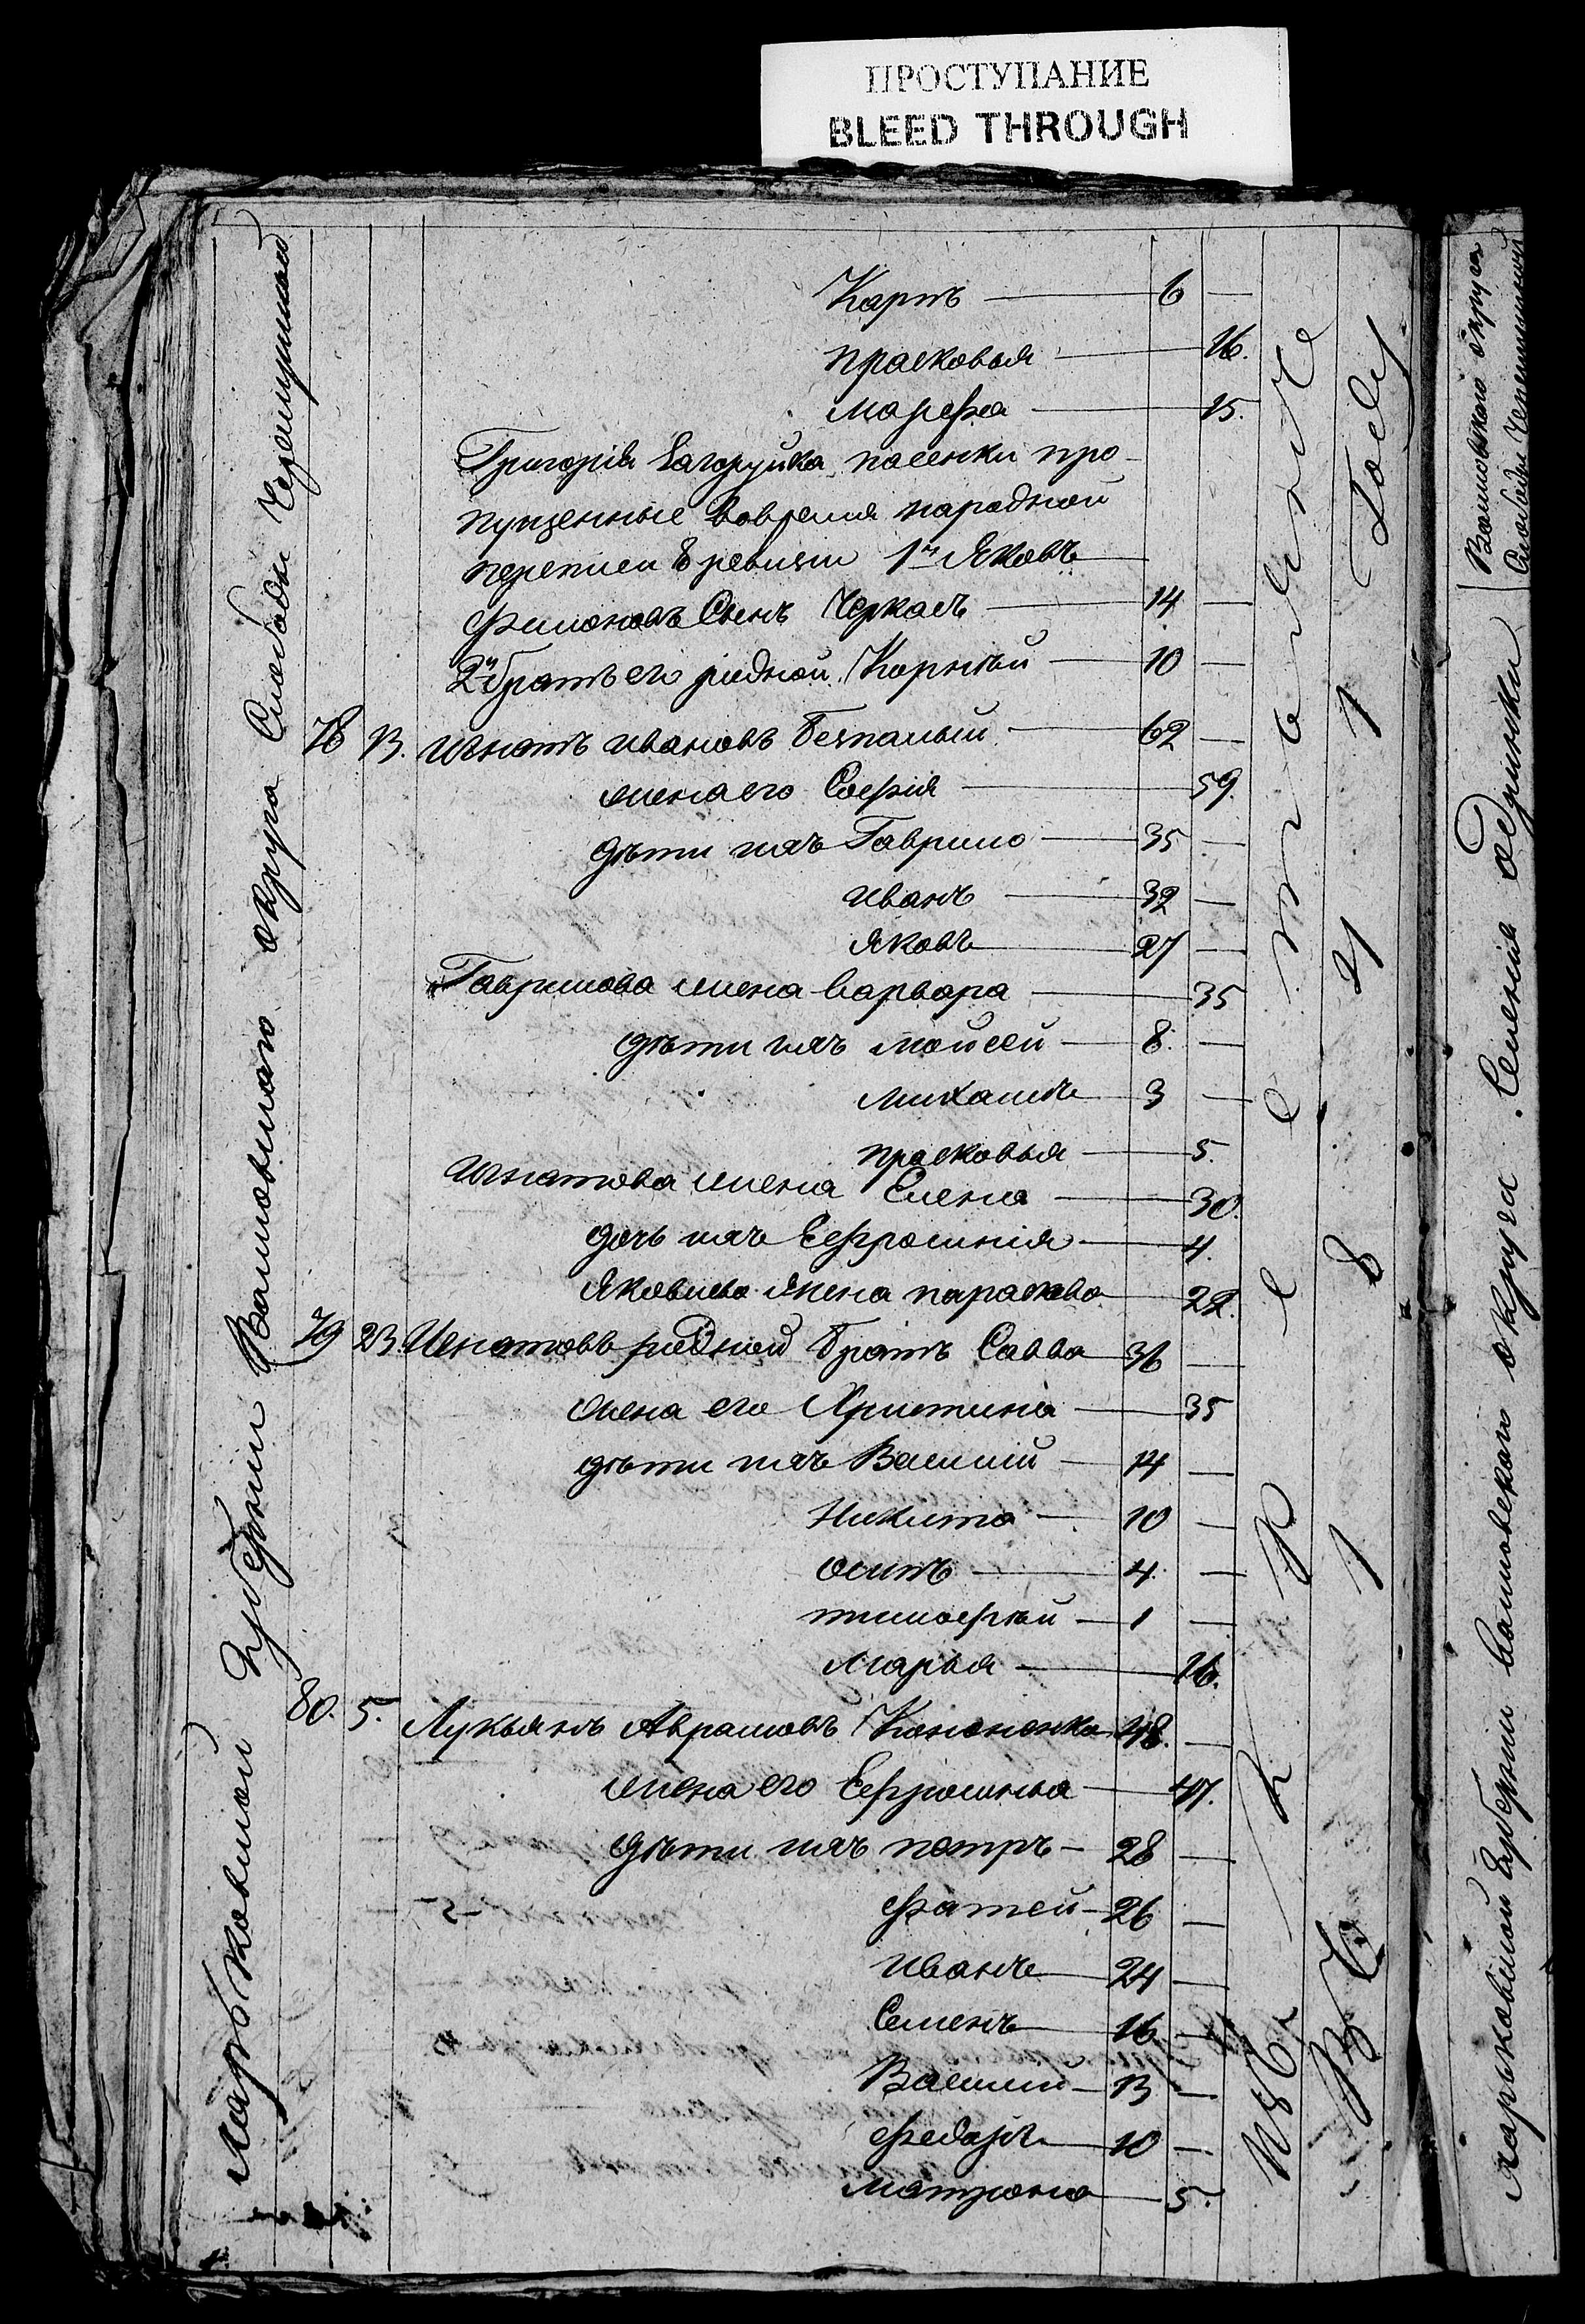 ПРОСТУПАНИЕ
BLEED THROUGH
Харьковской губернии Валковского округа Слободы Черемушной
Карпъ 6 —
прасковья 16.
марфа 15.
Григорія Загоруйка пасенки про-
пущенные вовремя народной
переписи 8 ревизіи 1й Яковъ
Филоновъ Сынъ Черкасъ 14 —
2й братъ его родной Корнѣй 10 —
78 13. игнатъ ивановъ безпалый 62 —
жена его Софія 59.
дѣти ихъ Гаврило 35 —
иванъ 32 —
яковъ 27 —
Гаврилова жена варвара 35
дѣти ихъ мойсей 8. —
михаилъ 3 —
прасковья 5.
игнатова жена Елена 30.
дочь ихъ Ефросинія 4.
Яковлева жена параскева 22.
79 23. Игнатовъ родной братъ Савва 36 —
жена его Христина 35
дѣти ихъ Василій 14 —
Никита 10 —
осипъ 4. —
тимофѣй 1 —
марья 16.
80. 5. Лукьянъ Аврамовъ Кононенко 48. —
жена его Ефросинья 47.
дѣти ихъ петръ 28 —
фатей 26 —
иванъ 24 —
Семенъ 16 —
Василій 13 —
федоръ 10 —
матрона 5.
1 8 2 1 Году
харьковской губерніи валковского округа Селенія
Валковского округа
Слободы Черемушной